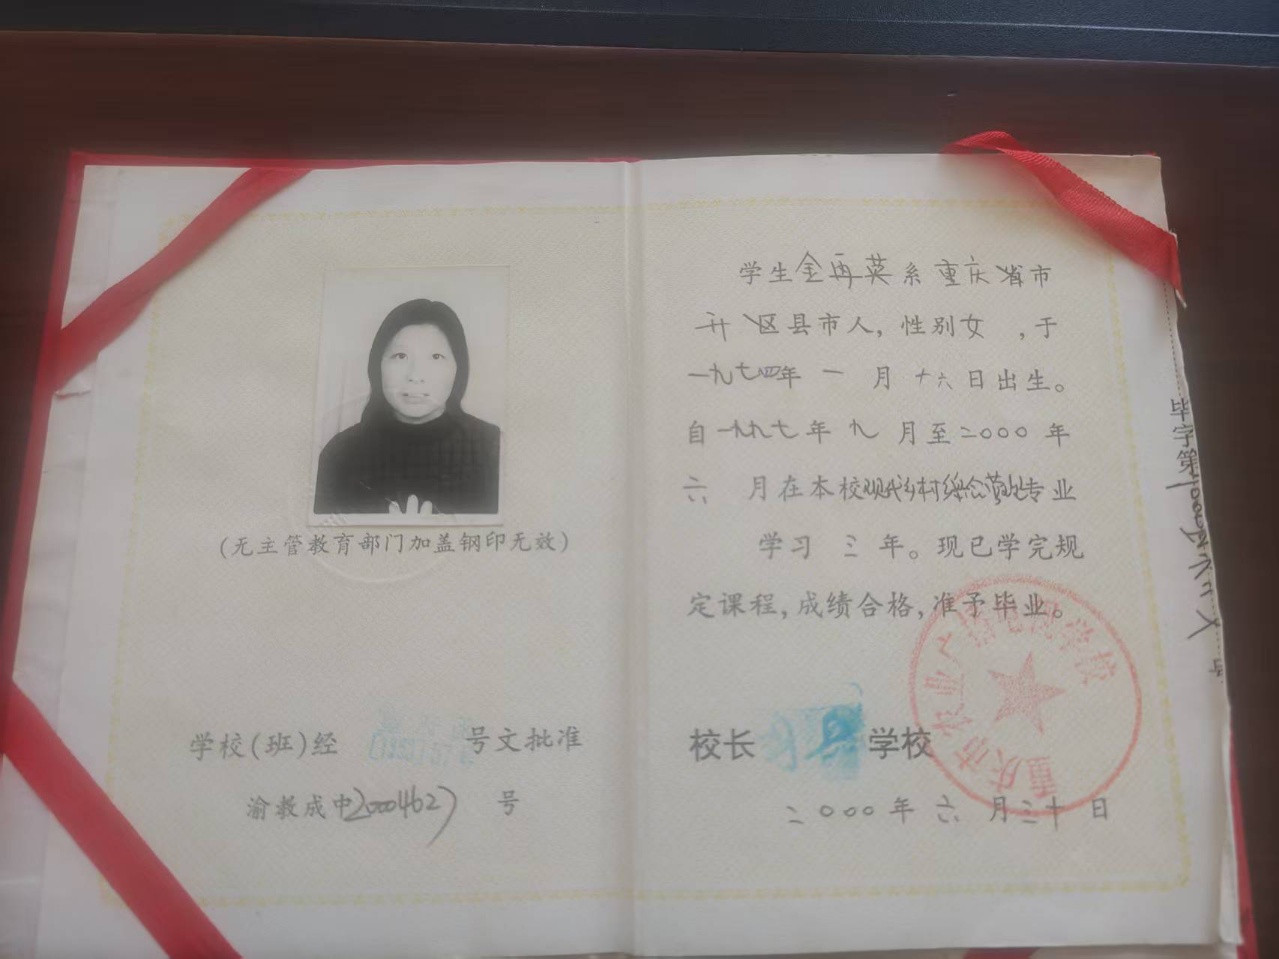 (无主管教育部门加盖钢印无效)
学校(班)经 号文批准
渝教成中20004627 号
学生金再英系重庆省市
开区县市人,性别女 ,于
一九七四年 一 月 十六日出生。
自一九九七年 九 月至二〇〇〇年
六 月在本校现代乡村综合营地专业
学习 三 年。现已学完规
定课程,成绩合格,准予毕业。
校长 学校
二〇〇〇年 六 月三十日
重庆市农业广播电视学校
毕字第 号